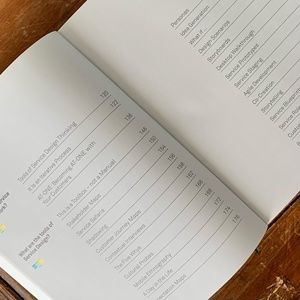 What are the tools of
Service Design?
Tools of Service Design Thinking
It is an Iterative Process
AT-ONE: Becoming AT-ONE with
Your Customers
This is a Toolbox - not a Manual
Stakeholder Maps
Service Safaris
Shadowing
Customer Journey Maps
Contextual Interviews
The Five Whys
Cultural Probes
Mobile Ethnography
A Day in the Life
Expectation Maps
120
122
136
148
150
154
156
158
162
166
168
172
174
176
Personas
Idea Generation
What if...
Design Scenarios
Storyboards
Desktop Walkthrough
Service Prototypes
Service Staging
Agile Development
Co-Creation
Storytelling
Service Blueprints